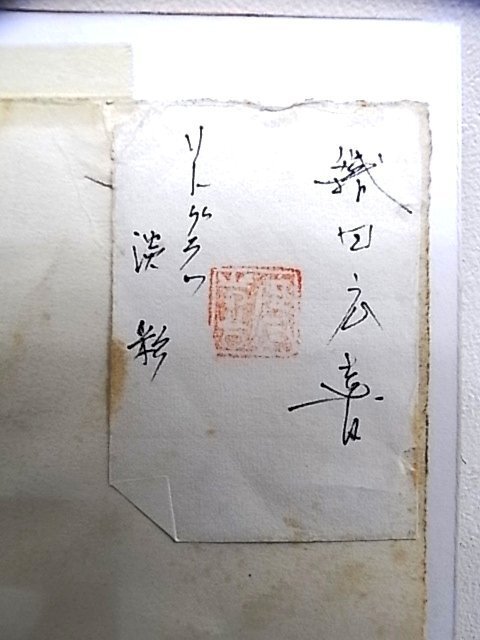 織田広喜
リトグラフ
淡彩